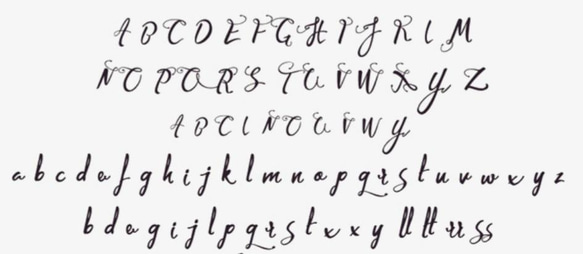 A B C D E F G H I J K L M
N O P Q R S T U V W X Y Z
A B C L N O U V W Y
a b c d e f g h i j k l m n o p q r s t u v w x y z
b d e g i j l p q r s t x x y ll tt rr ss